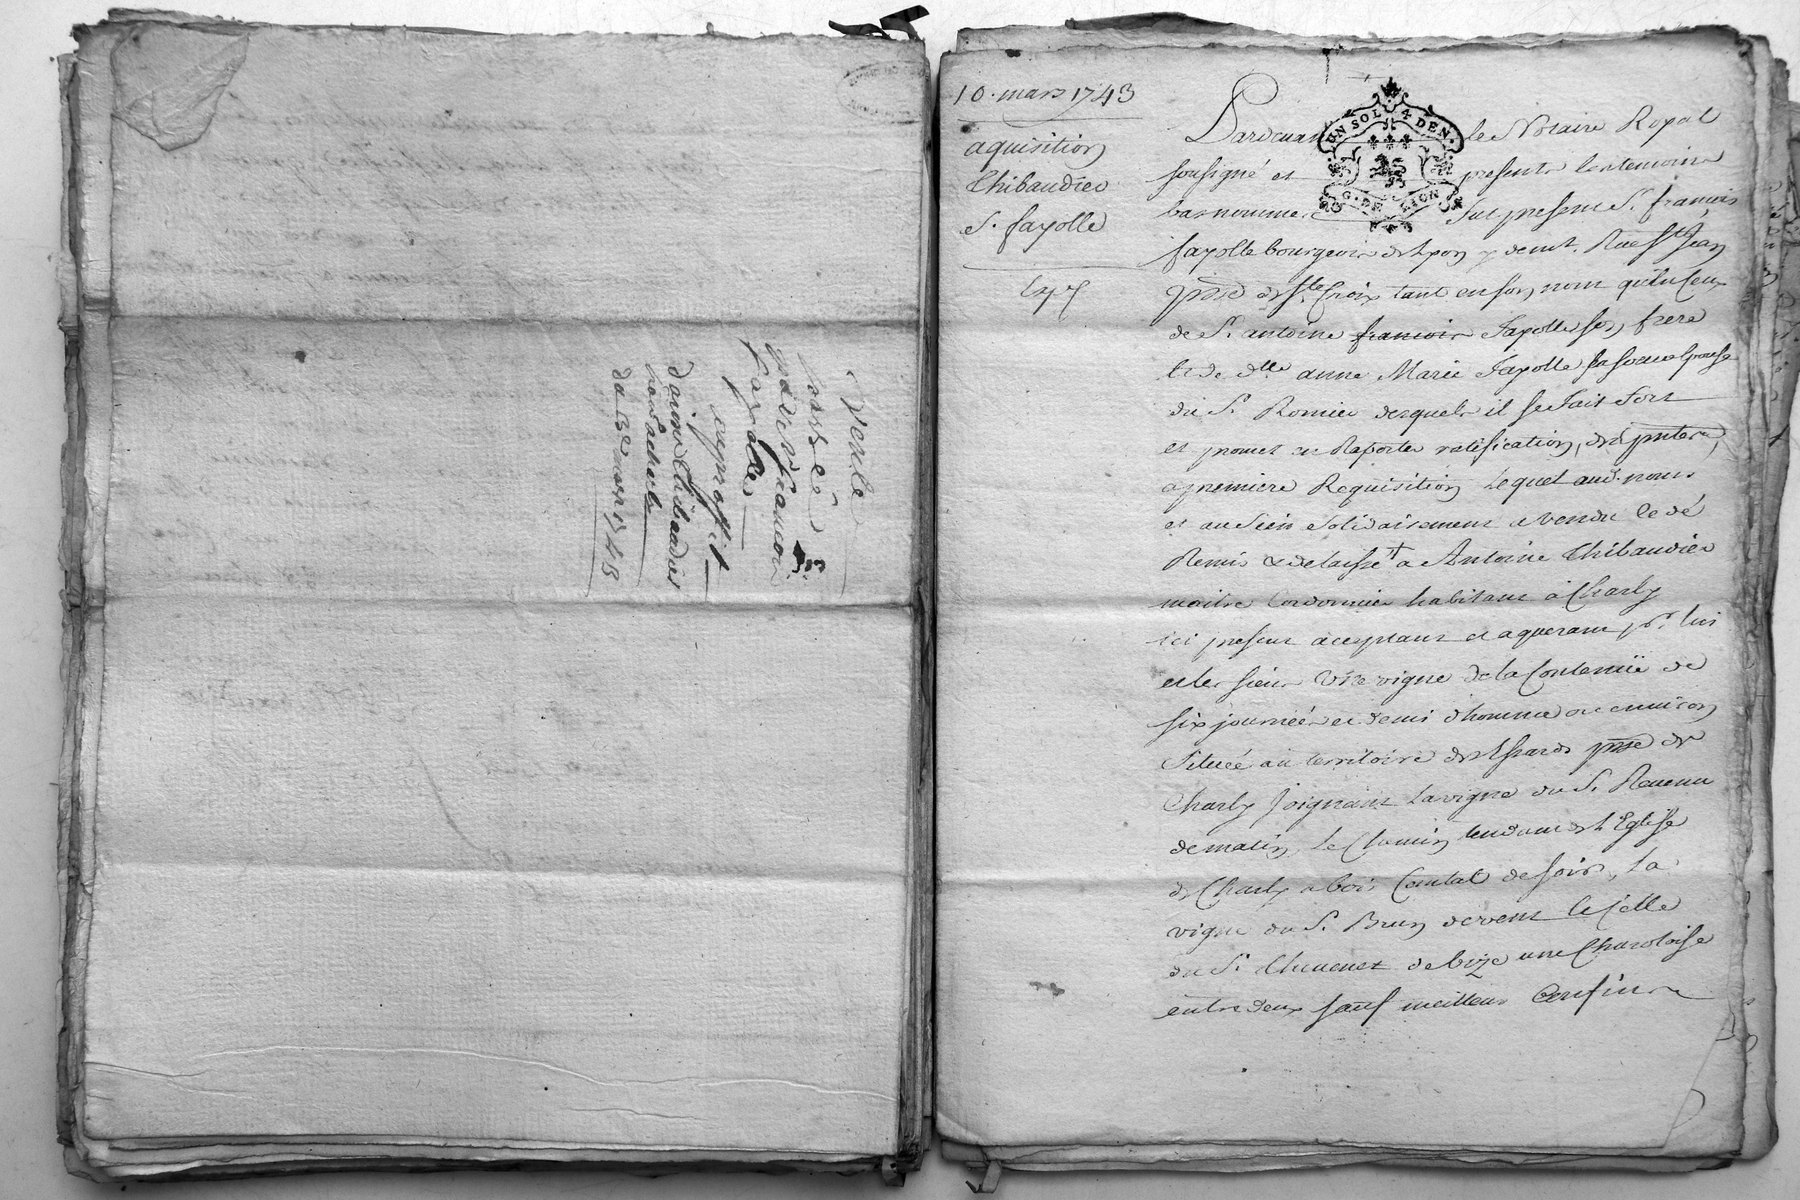 Vente
passée
par Sr francois
fayolle
au proffit
d'antoine Thibaudier
du 10e mars 1743
10. mars 1743
aquisition
Thibaudier
S. fayolle
UN SOL 4 DEN.
G. DE LION
Pardevant le Notaire Royal
sousigné et presents les temoins
bas nommés fut present Sr. francois
fayolle bourgeois de Lyon y demt. Rue St Jean
psse de Ste Croix tant en son nom qu'en Ceux
de Sr. antoine francois fayolle son frere
et de dlle anne Marie fayolle sa soeur Epouse
du Sr. Romier desquels il se fait fort
et promet en Raporter ratification des pntes
a premiere Requisition Lequel aud. noms
et au sien Solidairement a vendu Cedé
Remis et delaissé a Antoine Thibaudier
maitre Cordonnier habitant à Charly
ici present acceptant et aquerant pr. lui
et les siens Une vigne de la Contenüe de
six journées et demi d'homme ou environ
Située au territoire des psse de
Charly Joignant La vigne du Sr.
de matin, Le Chemin tendant de l'Eglise
de Charly a bois Contal de soir, La
vigne du Sr. Brun de vent Et Celle
du Sr. Chuvenet de bize une Charoloise
entre deux sauf meilleurs Confins